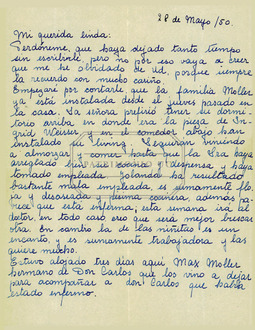 28 de Mayo /50.
Mi querida linda:
Perdóneme, que haya dejado tanto tiempo
sin escribirle pero no por eso vaya a creer
que me he olvidado de Ud, porque siempre
la recuerdo con mucho cariño.
Empezaré por contarle que la familia Moller
ya está instalada desde el jueves pasado en
la casa. La señora prefirió tener su dormi-
torio arriba en donde era la pieza de In-
grid Weiser, y en el comedor abajo han
instalado su living. Seguirán viniendo
a almorzar y comer hasta que Eva haya
arreglado despensa y haya
tomado empleada. Jolanda ha resultado
bastante mala empleada, es sumamente flo-
ja y descarada, además pa-
rece que está enferma, esta semana irá al
doctor, en todo caso creo que será mejor buscar
otra. En cambio la de las niñitas es un
encanto, y es sumamente trabajadora y las
quiere mucho.
Estuvo alojado tres días aquí Max Moller
hermano de Don Carlos que los vino a dejar
para acompañar a don Carlos que había
estado enfermo.